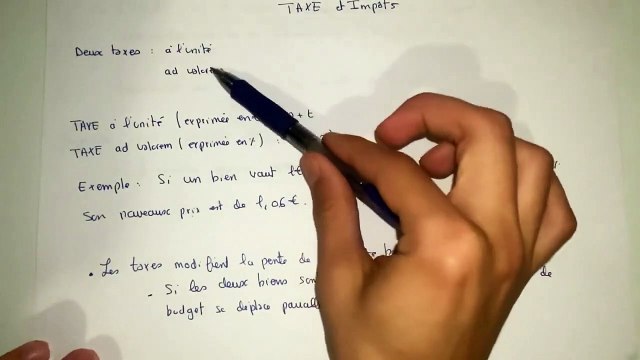 TAXE et Impots
Deux taxes : à l'unité
ad valorem
TAXE à l'unité (exprimée en + t
TAXE ad valorem (exprimée en % ) :
Exemple : Si un bien vaut 1€
Son nouveaux prix est de 1,06€.
• Les taxes modifient la pente de b
- Si les deux biens son de
budget se déplace parall